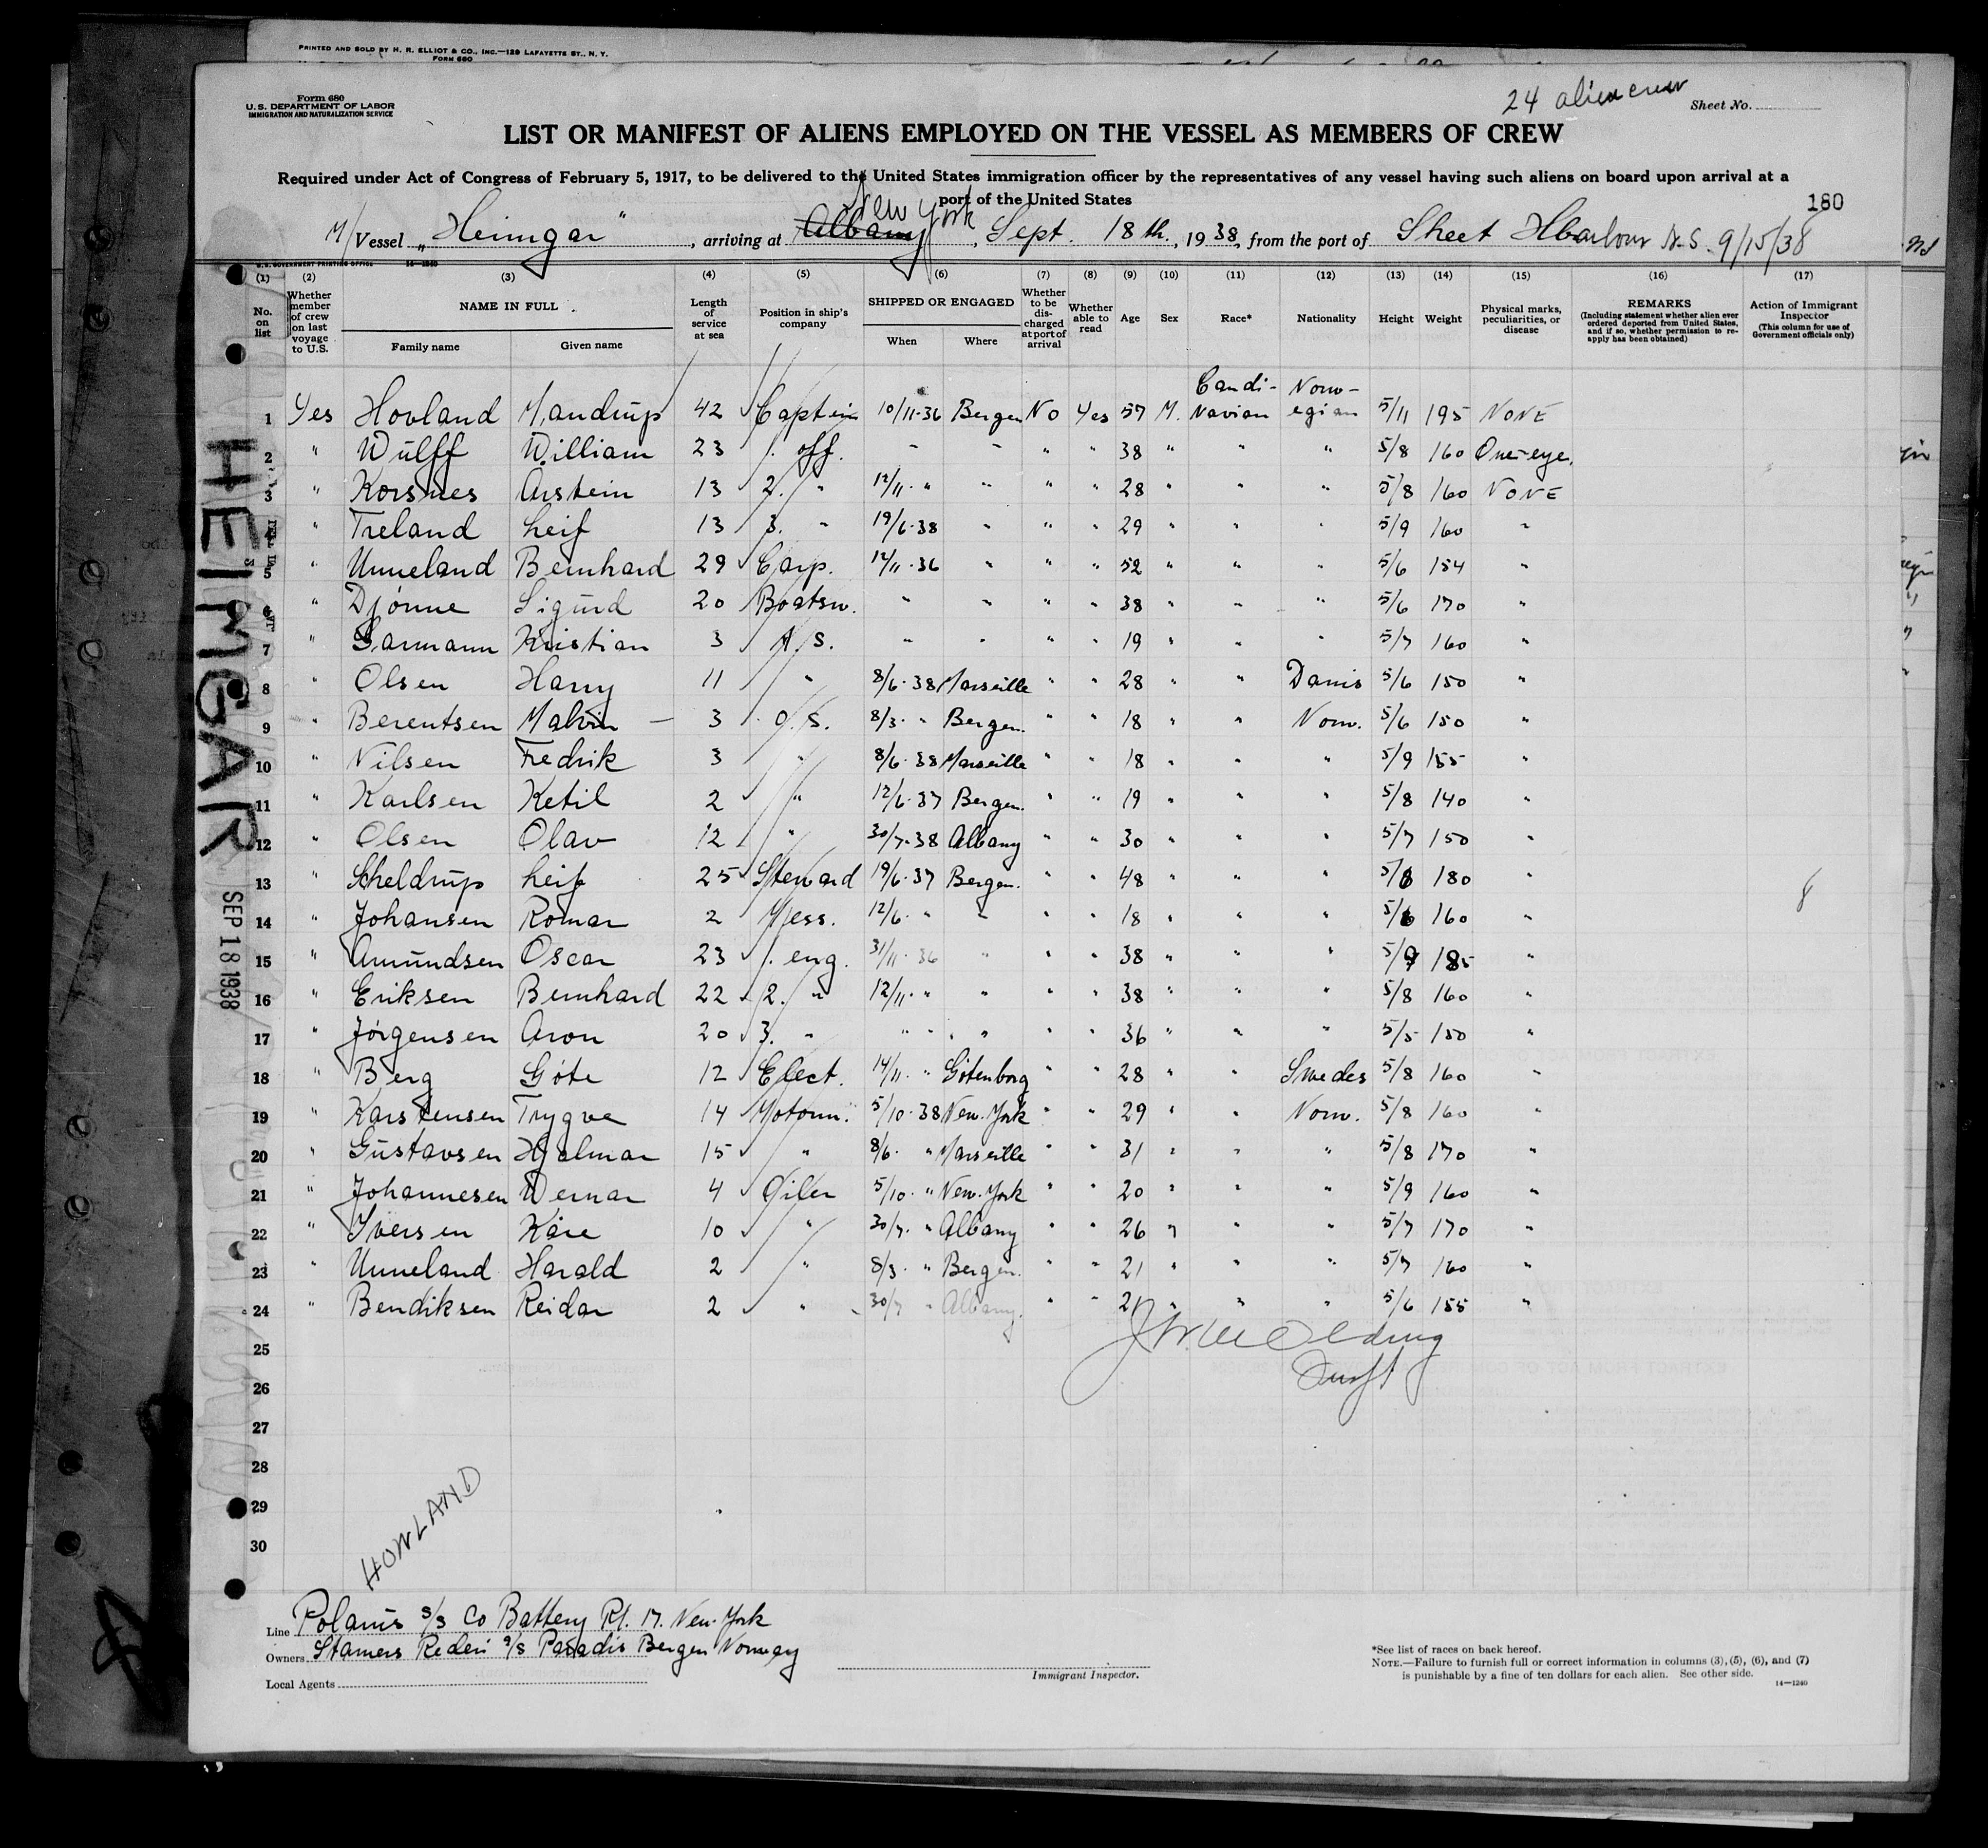 PRINTED AND SOLD BY H. R. ELLIOT & CO., INC.—129 LAFAYETTE ST., N. Y.
FORM 680
Form 680
U. S. DEPARTMENT OF LABOR
IMMIGRATION AND NATURALIZATION SERVICE
24 alien crew
Sheet No.
LIST OR MANIFEST OF ALIENS EMPLOYED ON THE VESSEL AS MEMBERS OF CREW
Required under Act of Congress of February 5, 1917, to be delivered to the United States immigration officer by the representatives of any vessel having such aliens on board upon arrival at a
port of the United States
180
New York
M/ Vessel „Heimgar", arriving at Albany, Sept. 18th., 1938, from the port of Sheet Harbour N.S. 9/15/38
U. S. GOVERNMENT PRINTING OFFICE 14—1240
(1) (2) (3) (4) (5) (6) (7) (8) (9) (10) (11) (12) (13) (14) (15) (16) (17)
No. on list
Whether member of crew on last voyage to U.S.
NAME IN FULL
Family name Given name
Length of service at sea
Position in ship's company
SHIPPED OR ENGAGED
When Where
Whether to be discharged at port of arrival
Whether able to read
Age Sex Race* Nationality Height Weight
Physical marks, peculiarities, or disease
REMARKS
(Including statement whether alien ever ordered deported from United States, and if so, whether permission to reapply has been obtained)
Action of Immigrant Inspector
(This column for use of Government officials only)
1 Yes Hovland Mandrup 42 Captein 10/11-36 Bergen No Yes 57 M. Candi-navian Norw-egian 5/11 195 NONE
2 " Wulff William 23 1. off. - - " " 38 " " " 5/8 160 One-eye.
3 " Korsnes Arstein 13 2. " 12/11. " " " " 28 " " " 5/8 160 NONE
4 " Treland Leif 13 3. " 19/6-38 " " " 29 " " " 5/9 160 "
5 " Unneland Bernhard 29 Carp. 12/11-36 " " " 52 " " " 5/6 154 "
6 " Djönne Sigurd 20 Boatsw. " " " " 38 " " " 5/6 170 "
7 " Garmann Kristian 3 A/S. " " " " 19 " " " 5/7 160 "
8 " Olsen Harry 11 " 8/6-38 Marseille " " 28 " " Danis 5/6 150 "
9 " Berentsen Malvin — 3 O.S. 8/3. " Bergen. " " 18 " " Norw. 5/6 150 "
10 " Nilsen Fredrik 3 " 8/6-38 Marseille " " 18 " " " 5/9 155 "
11 " Karlsen Ketil 2 " 12/6-37 Bergen. " " 19 " " " 5/8 140 "
12 " Olsen Olav 12 " 30/7-38 Albany " " 30 " " " 5/7 150 "
13 " Scheldrup Leif 25 Steward 19/6-37 Bergen. " " 48 " " " 5/8 180 "
14 " Johansen Romar 2 Mess. 12/6. " " " " 18 " " " 5/6 160 "
15 " Amundsen Oscar 23 1. eng. 31/11-36 " " " 38 " " " 5/9 185 "
16 " Eriksen Bernhard 22 2. " 12/11. " " " " 38 " " " 5/8 160 "
17 " Jörgensen Aron 20 3. " " " " " " 36 " " " 5/5 150 "
18 " Berg Göte 12 Elect. 14/11. " Götenborg " " 28 " " Swedes 5/8 160 "
19 " Karstensen Trygve 14 Motorm. 5/10-38 New-York " " 29 " " Norw. 5/8 160 "
20 " Gustavsen Hjalmar 15 " 8/6. " Marseille " " 31 " " " 5/8 170 "
21 " Johannesen Wernar 4 Oiler 5/10. " New-York " " 20 " " " 5/9 160 "
22 " Iversen Kåre 10 " 30/7. " Albany " " 26 " " " 5/7 170 "
23 " Unneland Harald 2 " 8/3. " Bergen. " " 21 " " " 5/7 160 "
24 " Bendiksen Reidar 2 " 30/7 " Albany. " " 21 " " " 5/6 155 "
25
26
27
28
29
30
8
HEIMGAR
SEP 18 1938
HOWLAND
Line Polaris s/s Co Battery Pl. 17. New-York
Owners Stamers Rederi a/s Paradis Bergen Norway
Local Agents
Immigrant Inspector.
*See list of races on back hereof.
NOTE.—Failure to furnish full or correct information in columns (3), (5), (6), and (7)
is punishable by a fine of ten dollars for each alien. See other side.
14—1240